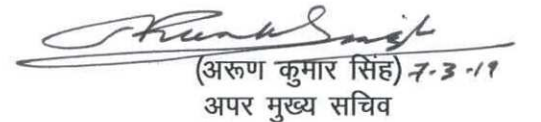 (अरूण कुमार सिंह) 7-3-19
अपर मुख्य सचिव